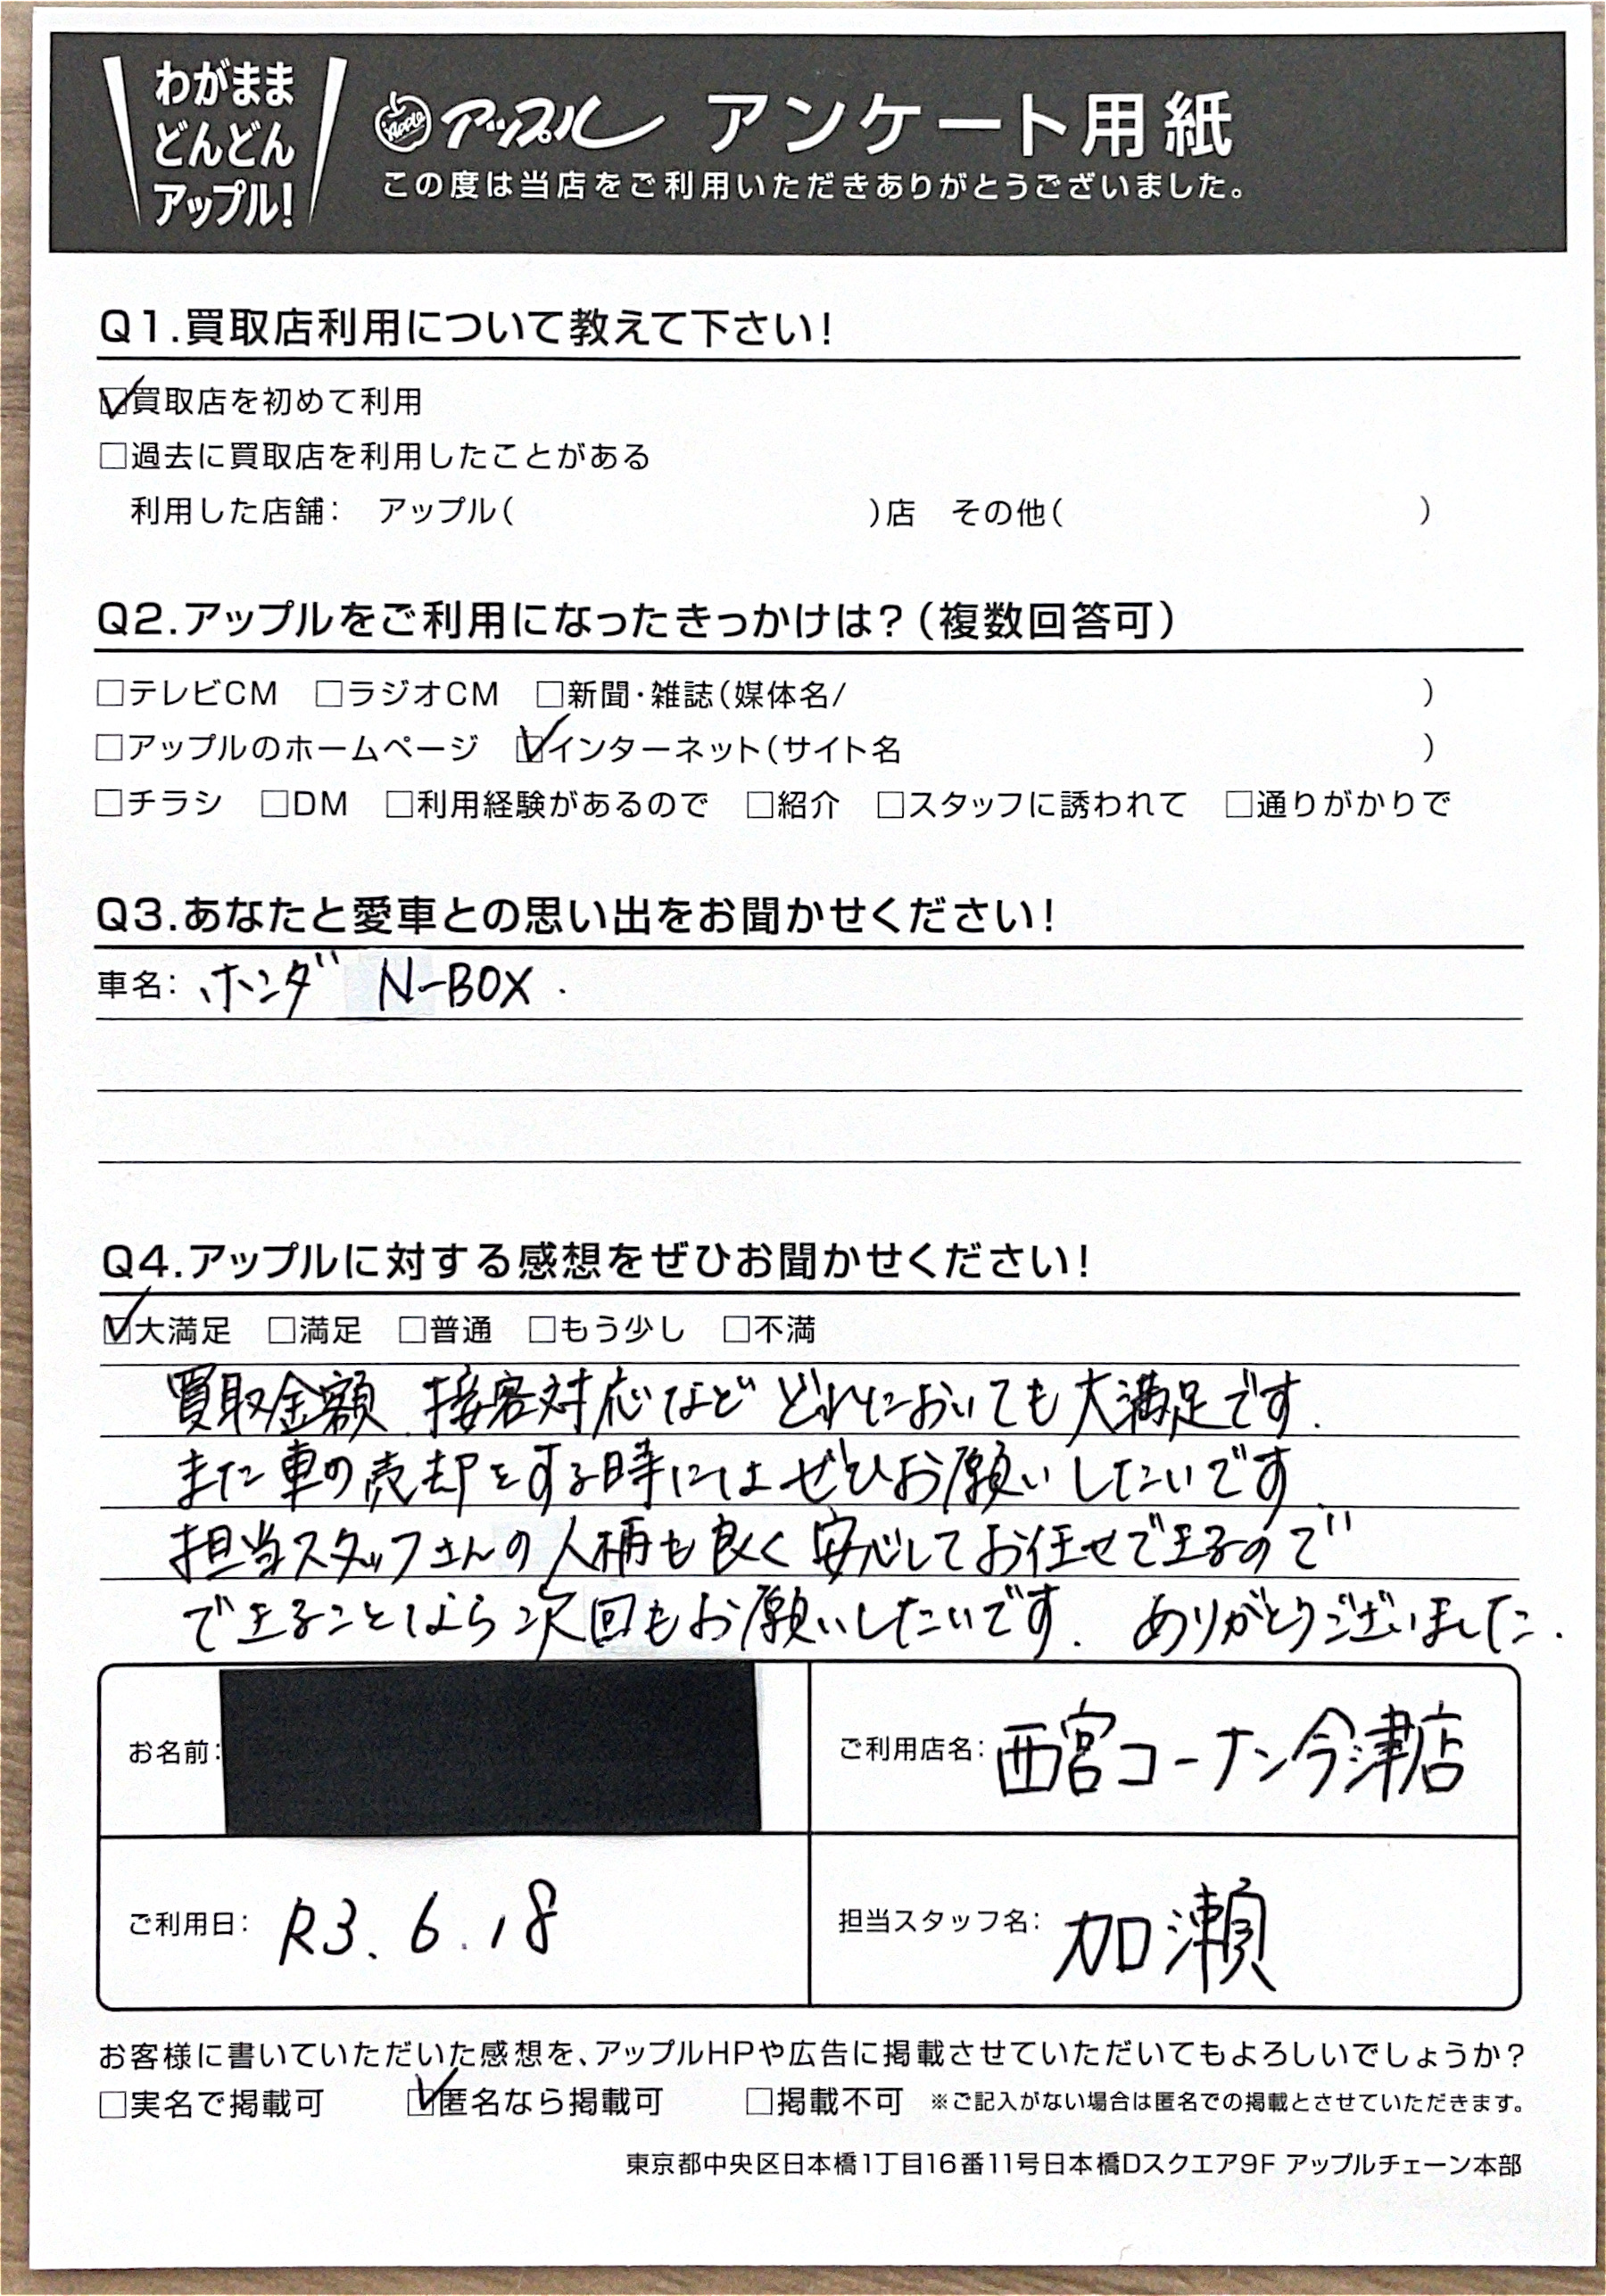 わがまま
どんどん
アップル!
Apple アップル アンケート用紙
この度は当店をご利用いただきありがとうございました。
Q1.買取店利用について教えて下さい!
☑買取店を初めて利用
□過去に買取店を利用したことがある
利用した店舗: アップル( )店 その他( )
Q2.アップルをご利用になったきっかけは?(複数回答可)
□テレビCM □ラジオCM □新聞・雑誌(媒体名/ )
□アップルのホームページ ☑インターネット(サイト名 )
□チラシ □DM □利用経験があるので □紹介 □スタッフに誘われて □通りがかりで
Q3.あなたと愛車との思い出をお聞かせください!
車名: ホンダ N-BOX.
Q4.アップルに対する感想をぜひお聞かせください!
☑大満足 □満足 □普通 □もう少し □不満
買取金額、接客対応など どれにおいても大満足です.
また車の売却をする時にはぜひお願いしたいです.
担当スタッフさんの人柄も良く安心してお任せできるので
できることならら次回もお願いしたいです. ありがとうございました.
お名前:
ご利用店名: 西宮コーナン今津店
ご利用日: R3.6.18
担当スタッフ名: 加瀬
お客様に書いていただいた感想を、アップルHPや広告に掲載させていただいてもよろしいでしょうか?
□実名で掲載可 ☑匿名なら掲載可 □掲載不可 ※ご記入がない場合は匿名での掲載とさせていただきます。
東京都中央区日本橋1丁目16番11号日本橋Dスクエア9F アップルチェーン本部